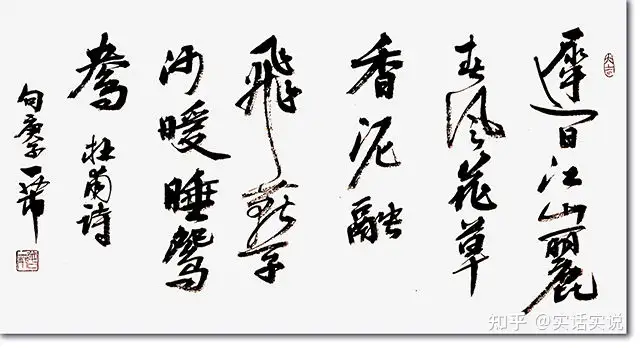 遲日江山麗
春風花草
香泥融
飛燕子
沙暖睡鴛
鴦 杜甫詩
句庚子
知乎 @实话实说